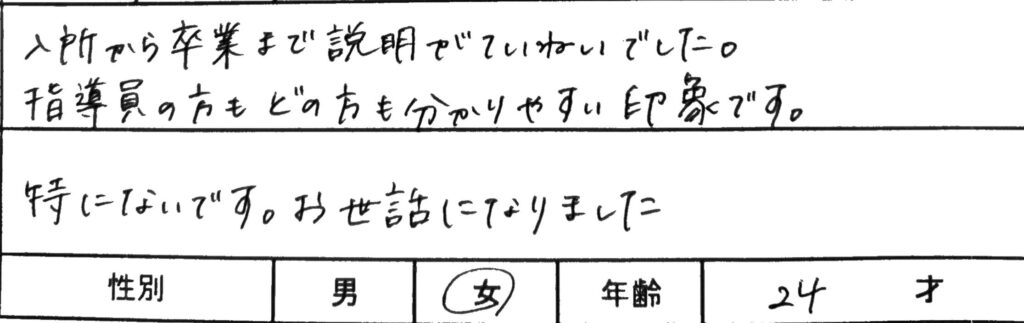 入所から卒業まで説明がていねいでした。
指導員の方もどの方も分かりやすい印象です。
特にないです。お世話になりました
性別 男 女 年齢 24 才